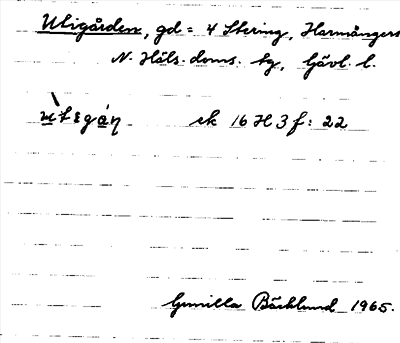 Utigården, gd = 4 Stering, Harmångers
N. Häls. doms. tg, Gävl. l.
ek 16 H 3 f: 22
Gunilla Bäcklund 1965.